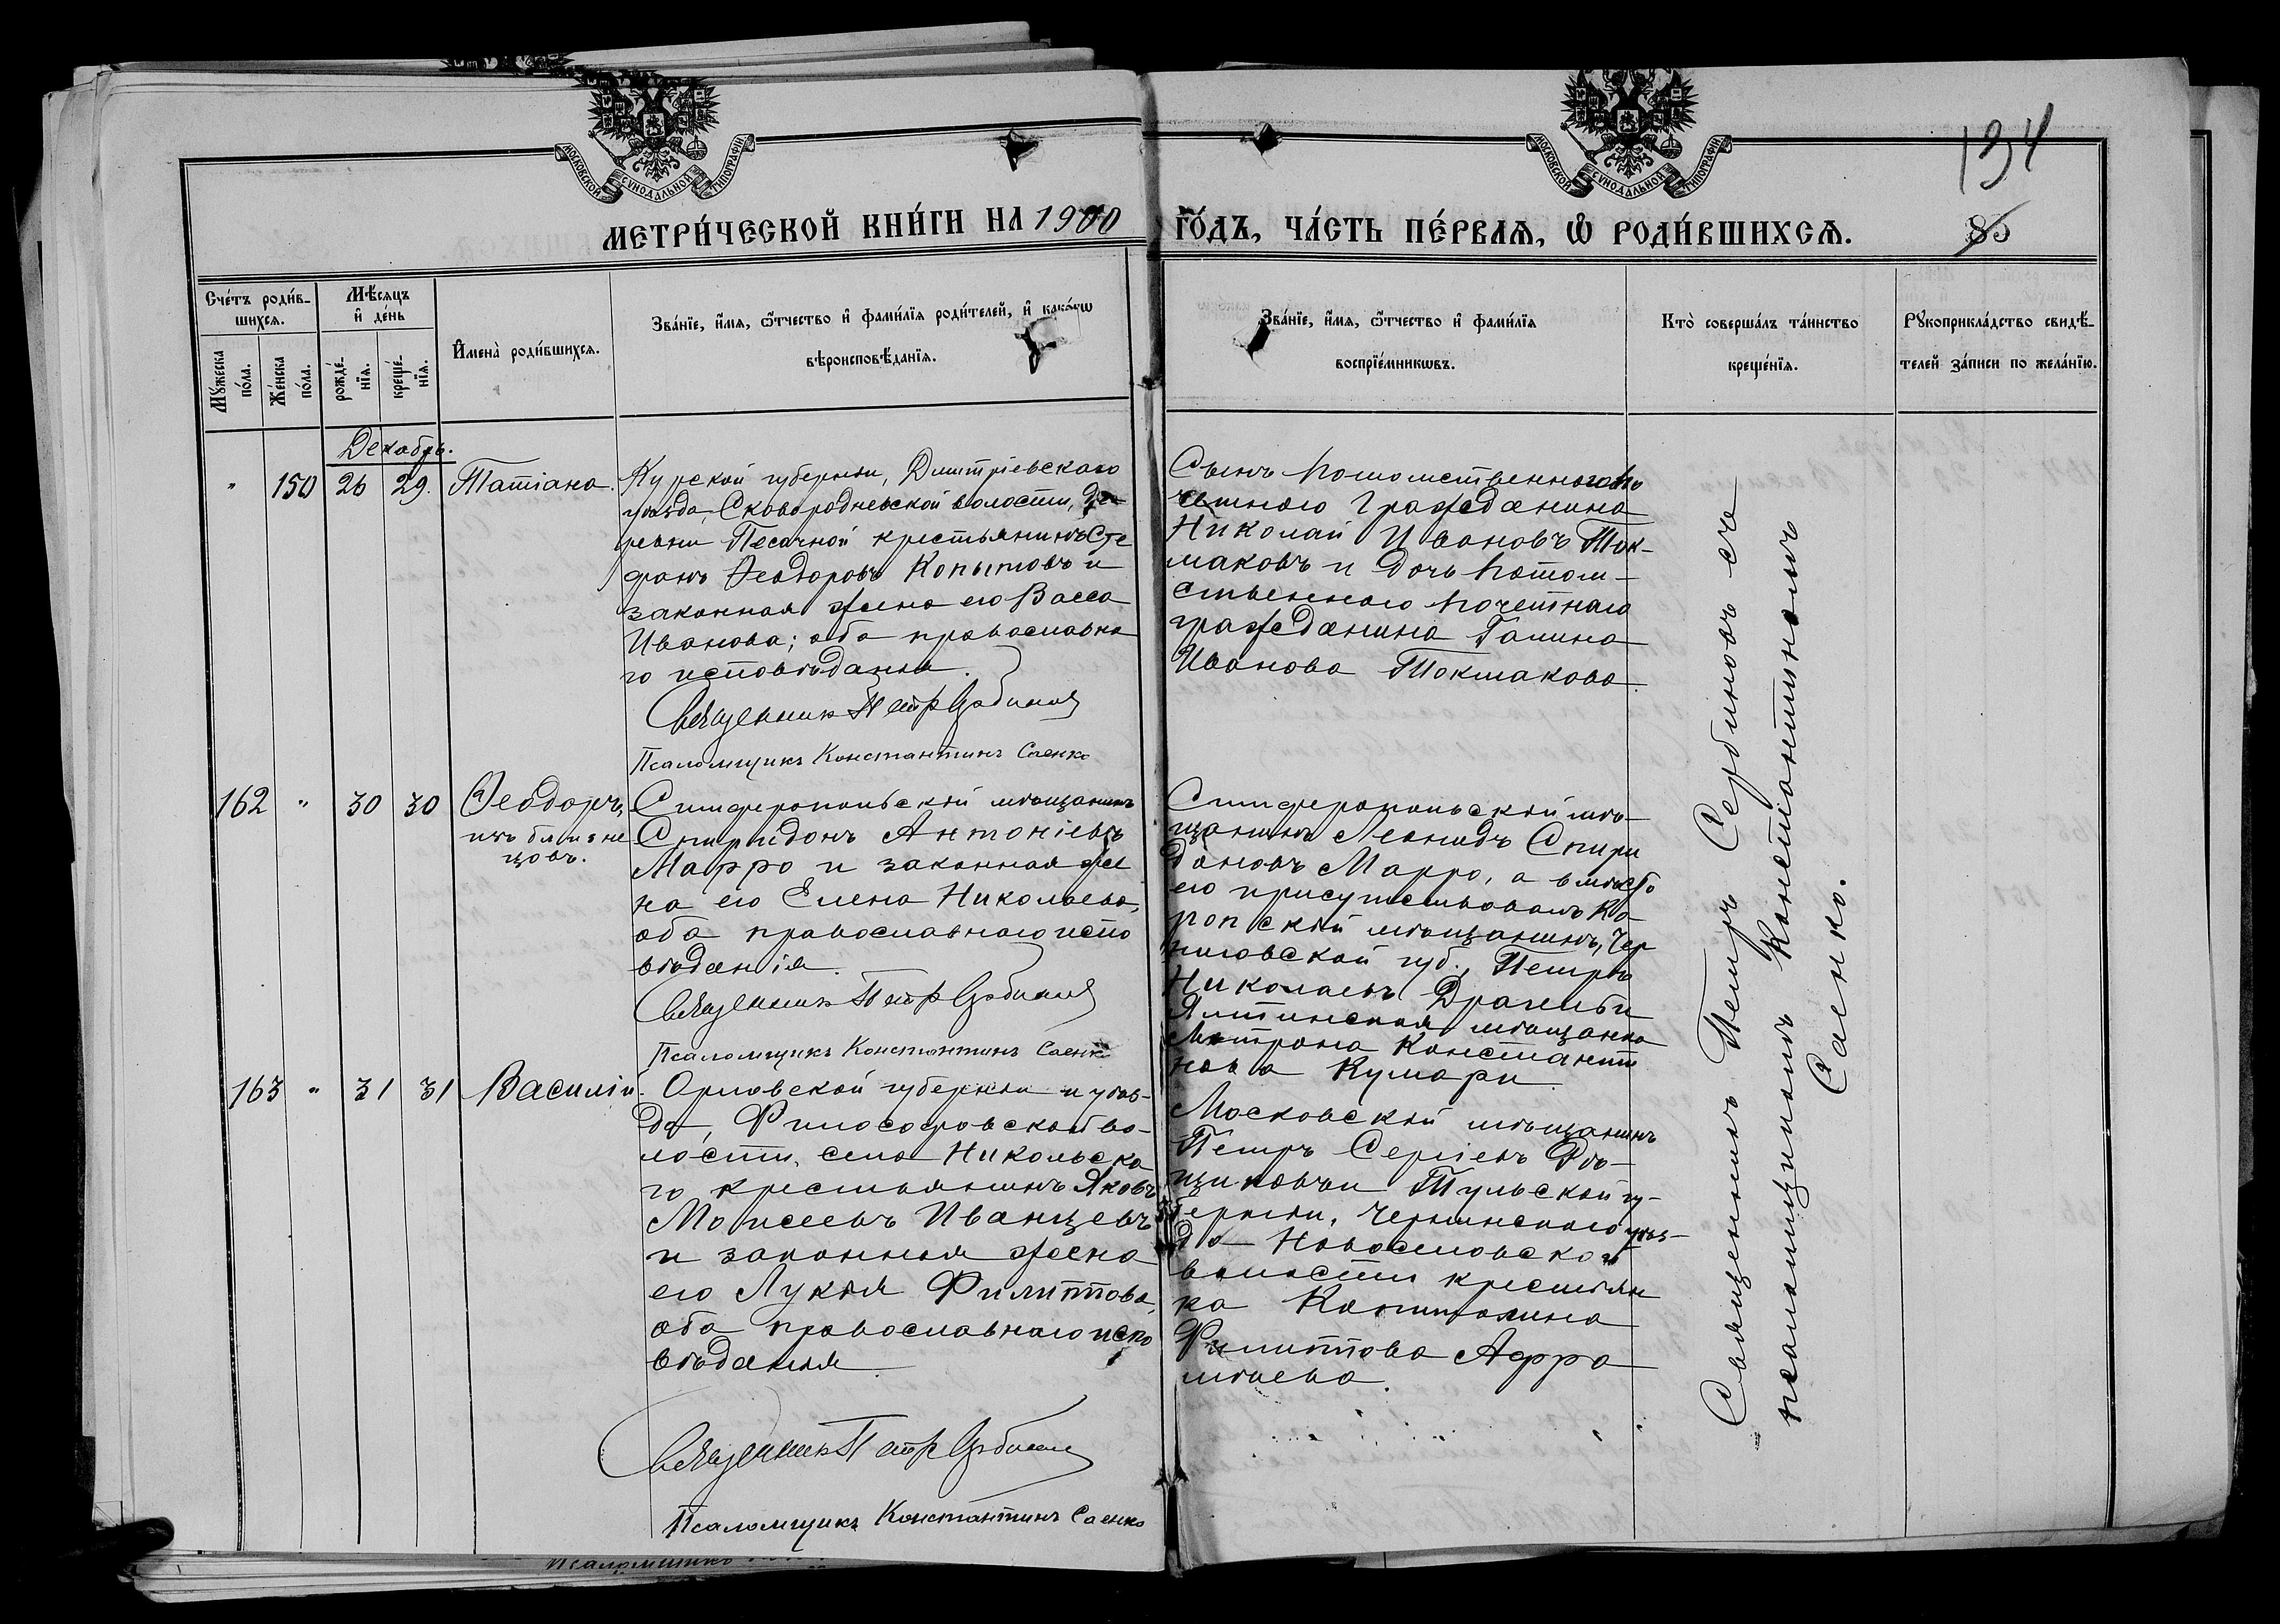 МОСКОВСКОЙ СѴНОДАЛЬНОЙ ТИПОГРАФІИ
МОСКОВСКОЙ СѴНОДАЛЬНОЙ ТИПОГРАФІИ
134
МЕТРИ́ЧЕСКОЙ КНИ́ГИ НА 1900 ГО́ДЪ, ЧА́СТЬ ПЕ́РВАѦ, Ѡ҆ РОДИ́ВШИХСѦ.
85
Сче́тъ роди́в-
шихсѧ.
Мѣ́сѧцъ
и҆ де́нь
Мꙋ́жеска
по́ла.
Же́нска
по́ла.
рожде́-
нїѧ.
креще́-
нїѧ.
И҆мена̀ роди́вшихсѧ.
Зва́нїе, и҆́мѧ, ѻ҆́тчество и҆ фами́лїѧ роди́телей, и҆ како́гѡ
вѣроисповѣ́данїѧ.
Зва́нїе, и҆́мѧ, ѻ҆́тчество и҆ фами́лїѧ
воспрїе́мникѡвъ.
Кто̀ соверша́лъ та́инство
креще́нїѧ.
Рꙋкоприкла́дство свидѣ́-
телей за́писи по жела́нїю.
Декабрь.
" 150 26 29. Татіана.
Курской губерніи, Дмитріевскаго
уѣзда, Сковородневской волости, де-
ревни Песочной крестьянинъ Сте
фанъ Ѳеодоровъ Копытовъ и
законная жена его Васса
Иванова; оба православна
го исповѣданія.
Священник Петр Сербинов
Псаломщикъ Константинъ Саенко
Сынъ Потомственнаго По
четнаго Гражданина
Николай Ивановъ Ток-
маковъ и дочь потом-
ственнаго почетнаго
гражданина Галина
Иванова Токмакова.
162 " 30 30 Ѳеодоръ,
изъ близне
цовъ.
Симферопольскій мѣщанинъ
Спиридонъ Антоніевъ
Марро и законная же
на его Елена Николаева,
оба православнаго испо
вѣданія.
Священник Петр Сербинов
Псаломщикъ Константинъ Саенко
Симферопольскій мѣ-
щанинъ Леонидъ Спири
доновъ Марро, а вмѣсто
его присутствовалъ Ко
ропскій мѣщанинъ, Чер
ниговской губ., Петръ
Николаевъ и
Ялтинская мѣщанка
Матрона Константи
нова Кумари.
163 " 31 31 Василій.
Орловской губерніи и уѣз-
да, Философовской во-
лости, села Никольска
го крестьянинъ Яковъ
Моисеевъ Иванцевъ
и законная жена
его Лукія Филиппова,
оба православнаго испо
вѣданія.
Священник Петр Сербинов
Псаломщикъ Константинъ Саенко
Московскій мѣщанинъ
Петръ Сергіевъ
и Тульской гу-
берніи, Чернскаго уѣз-
да Новосильской
волости крестьян
ка Капитолина
Филиппова
Священникъ Петръ Сербиновъ съ
псаломщикомъ Константиномъ
Саенко.